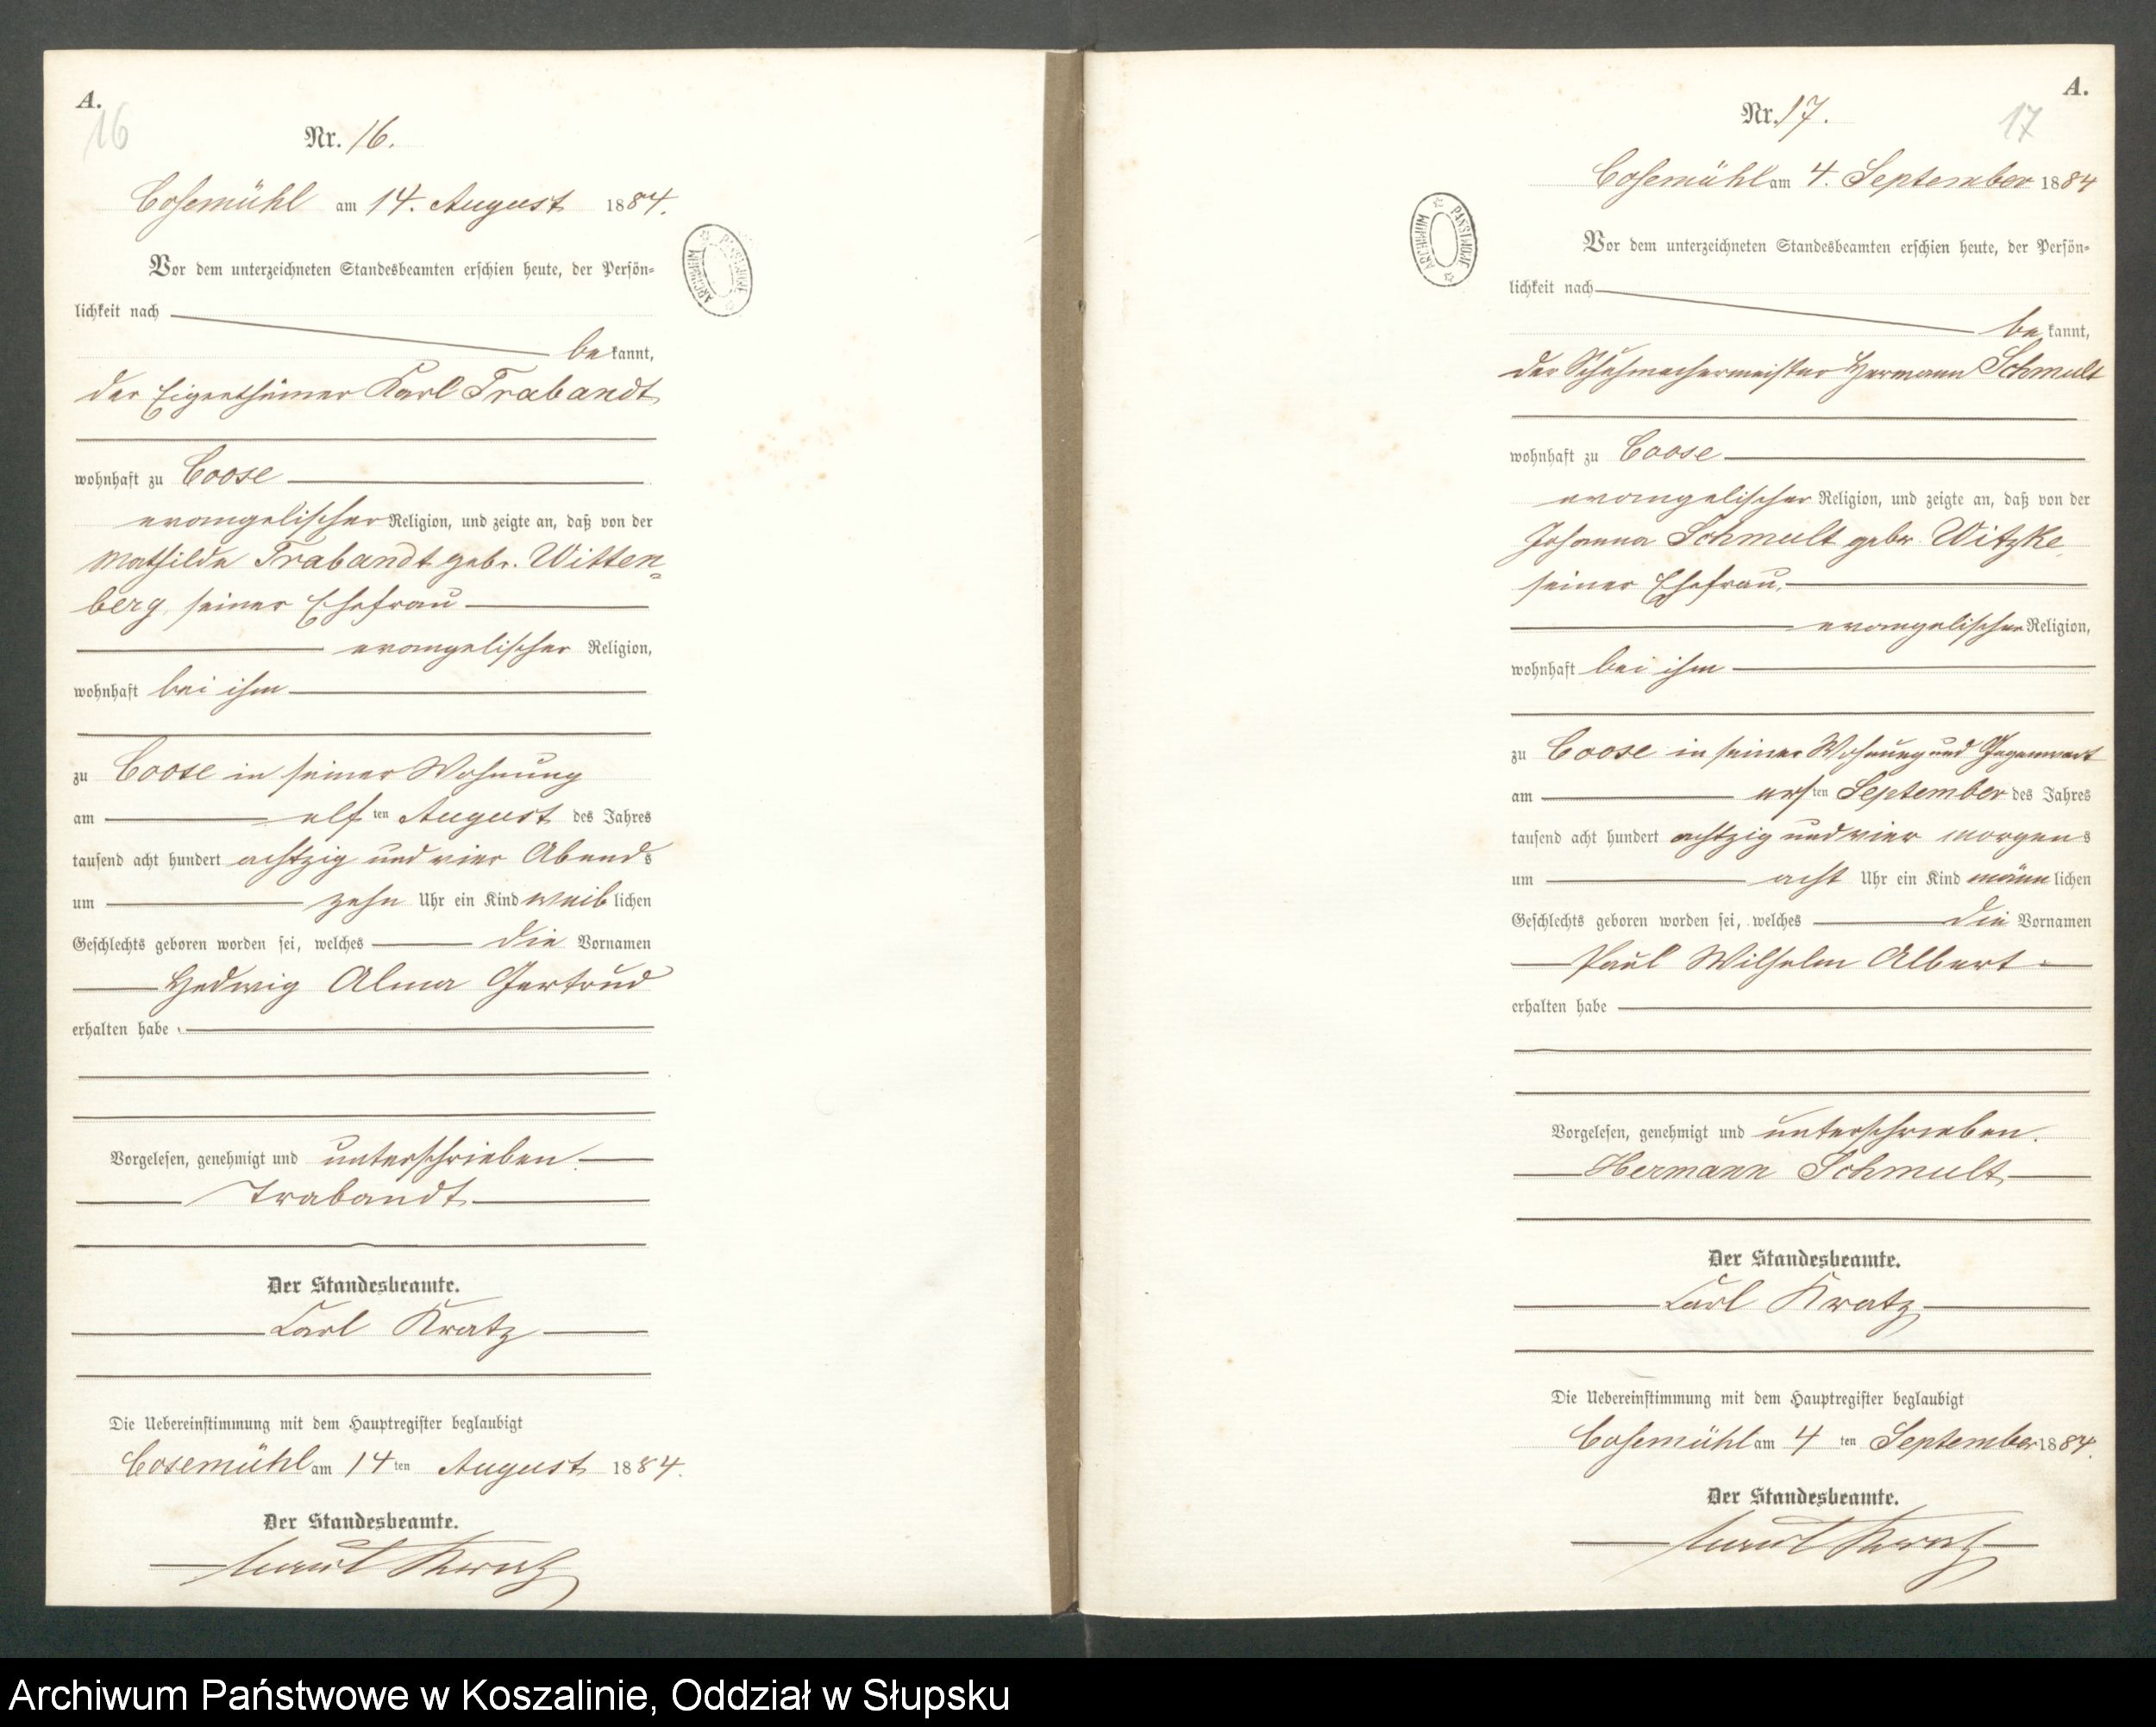 A.
16
Nr. 16.
Cosemühl am 14. August 1884.
Vor dem unterzeichneten Standesbeamten erschien heute, der Persön-
lichkeit nach
bekannt,
der Eigenthümer Karl Trabandt
wohnhaft zu Coose
evangelischer Religion, und zeigte an, daß von der
Mathilde Trabandt geb. Witten-
berg, seiner Ehefrau
evangelischer Religion,
wohnhaft bei ihm
zu Coose in seiner Wohnung
am elften August des Jahres
tausend acht hundert achtzig und vier Abends
um zehn Uhr ein Kind weiblichen
Geschlechts geboren worden sei, welches die Vornamen
Hedwig Alma Gertrud
erhalten habe
Vorgelesen, genehmigt und unterschrieben.
Trabandt
Der Standesbeamte.
Carl Kratz
Die Uebereinstimmung mit dem Hauptregister beglaubigt
Cosemühl am 14ten August 1884.
Der Standesbeamte.
Carl Kratz
ARCHIWUM PAŃSTWOWE
A.
17
Nr. 17.
Cosemühl am 4. September 1884
Vor dem unterzeichneten Standesbeamten erschien heute, der Persön-
lichkeit nach
bekannt,
der Schuhmachermeister Hermann Schmult
wohnhaft zu Coose
evangelischer Religion, und zeigte an, daß von der
Johanna Schmult geb. Witzke
seiner Ehefrau,
evangelischer Religion,
wohnhaft bei ihm
zu Coose in seiner Wohnung und Gegenwart
am ersten September des Jahres
tausend acht hundert achtzig und vier morgens
um acht Uhr ein Kind männlichen
Geschlechts geboren worden sei, welches die Vornamen
Paul Wilhelm Albert
erhalten habe
Vorgelesen, genehmigt und unterschrieben.
Hermann Schmult
Der Standesbeamte.
Carl Kratz
Die Uebereinstimmung mit dem Hauptregister beglaubigt
Cosemühl am 4ten September 1884.
Der Standesbeamte.
Carl Kratz
ARCHIWUM PAŃSTWOWE
Archiwum Państwowe w Koszalinie, Oddział w Słupsku